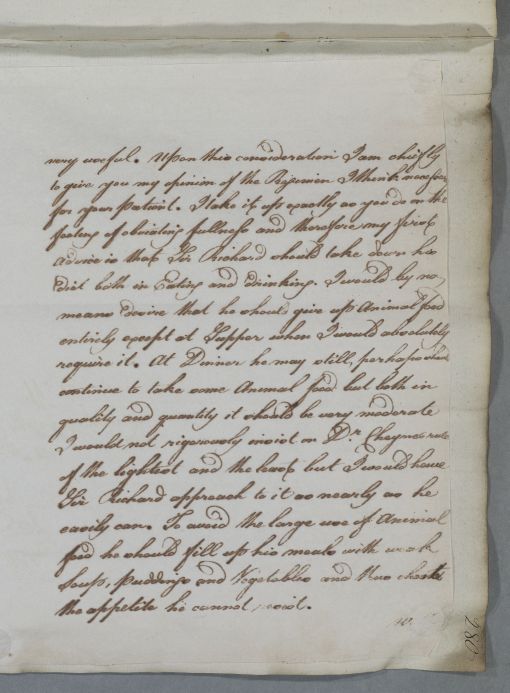 very useful. Upon this consideration I am chiefly
to give you my opinion of the Regimen I think necessary
for your Patient. I take it up exactly as you do on the
footing of obviating fullness and therefore my first
Advice is that Sir Richard should take down his
Diet both in Eating and drinking. I would by no
means desire that he should give up Animal food
entirely except at Supper when I would absolutely
require it. At Dinner he may still, perhaps should
continue to take some Animal food but both in
quality and quantity it should be very moderate
I would not rigorously insist on Dr. Cheynes rule
of the lightest and the least but I would have
Sir Richard approach to it as nearly as he
easily can. To avoid the large use of Animal
food he should fill up his meals with weak
Soup, puddings and Vegetables and thus cheat
the appetite he cannot resist.
280